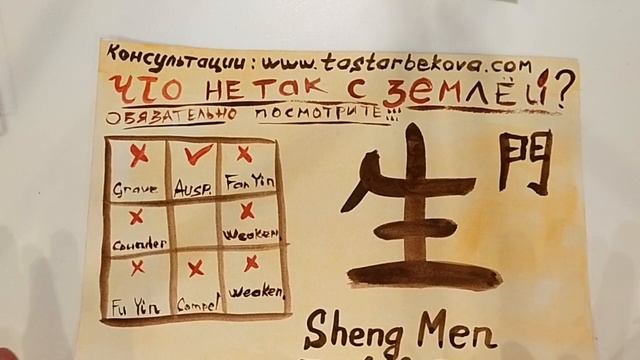 Консультации: www.tastarbekova.com
ЧТО НЕ ТАК С ЗЕМЛЁЙ?
ОБЯЗАТЕЛЬНО ПОСМОТРИТЕ!!!
Grave Ausp. Fan Yin
Counder Weaken.
Fu Yin Compel Weaken.
生 門
Sheng Men